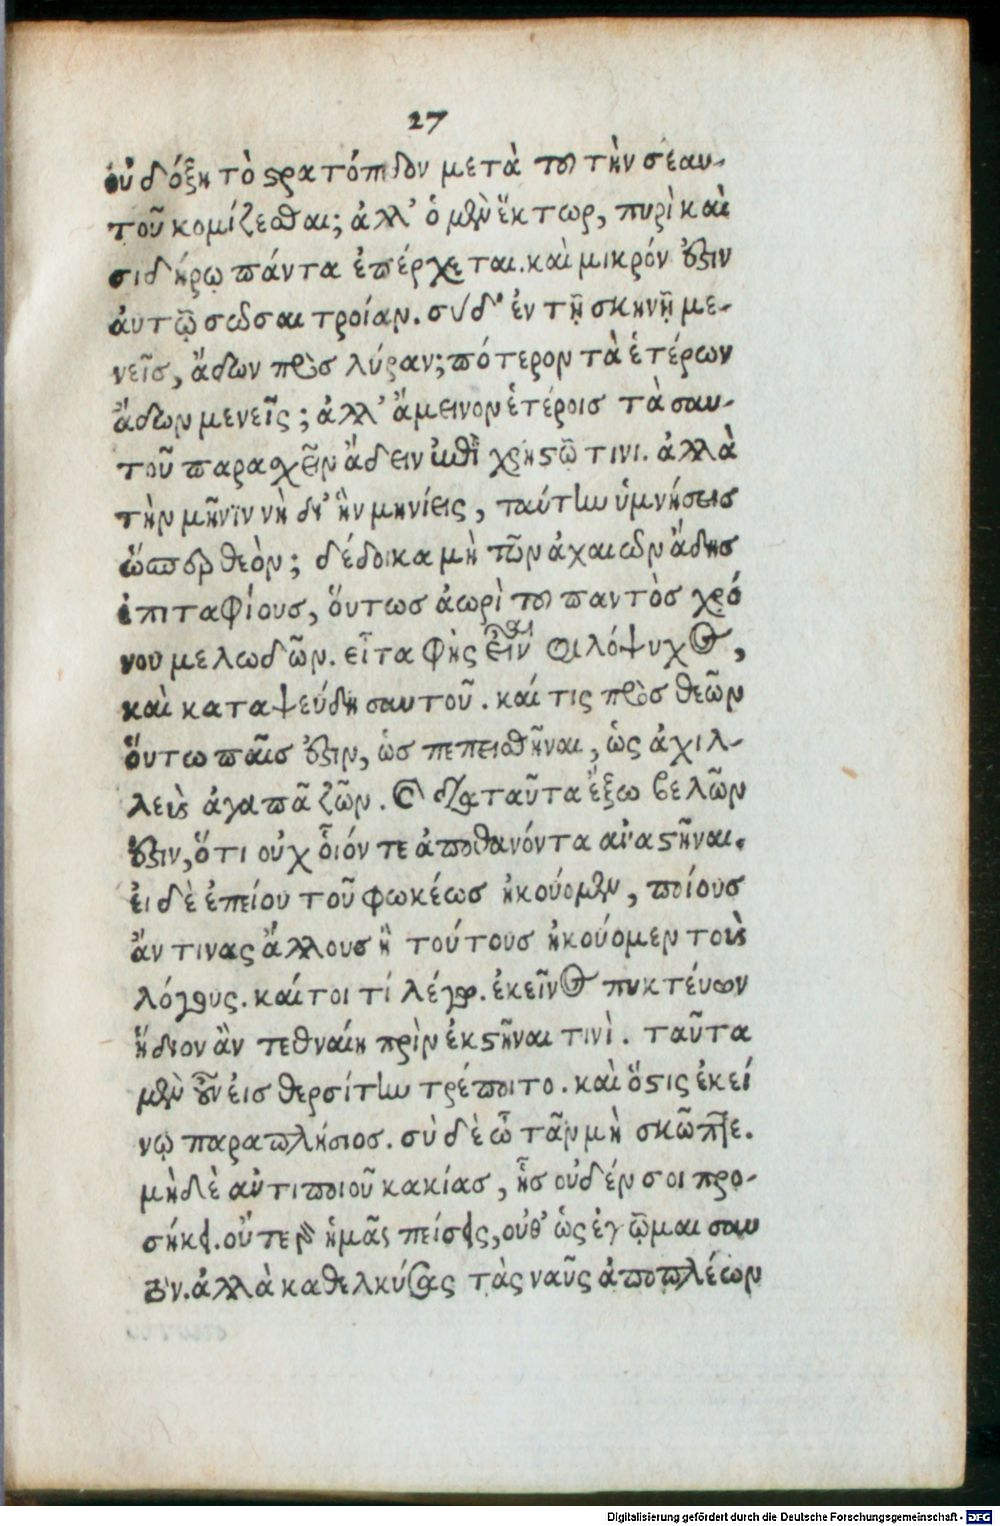 27
οὐ δόξῃ τὸ ϛρατόπεδον μετὰ τοῦ τὴν σεαυ-
τοῦ κομίζεσθαι; ἀλλ' ὁ μὲν ἕκτωρ, πυρὶ καὶ
σιδήρῳ πάντα ἐπέρχεται. καὶ μικρόν ὅϛιν
ἀυτῷ σῶσαι τροίαν. σὺ δ' ἐν τῇ σκηνῇ με-
νεῖσ, ἄδων πρὸσ λύραν; πότερον τὰ ἑτέρων
ἄδων μενεῖς; ἀλλ' ἄμεινον ἑτέροισ τὰ σαυ-
τοῦ παρασχεῖν ἄδειν χρηϛῷ τινι. ἀλλὰ
τὴν μῆνιν νὴ δι' ἣν μηνίεις, ταύτην ὑμνήσεισ
ὥσπερ θεὸν; δέδοικα μὴ τῶν ἀχαιῶν ἄδησ
ἐπιταφίουσ, ὅυτωσ ἀωρὶ τοῦ παντὸσ χρό
νου μελωδῶν. εἶτα φὴς εἶναι φιλόψυχος,
καὶ καταψεύδη σαυτοῦ. καί τις πρὸσ θεῶν
ὅυτω παῖσ ὅϛιν, ὡσ πεπεισθῆναι, ὡς ἀχιλ-
λεὺς ἀγαπᾶ ζῶν. καὶ διὰ ταῦτα ἔξω βελῶν
ὅϛιν, ὅτι οὐχ οἷόν τε ἀποθανόντα ἀναϛῆναι.
ἐι δὲ ἐπείου τοῦ φωκέωσ ἠκούομεν, ποίουσ
ἄν τινας ἄλλουσ ἢ τούτουσ ἠκούομεν τοὺς
λόγους. καίτοι τί λέγω. ἐκεῖνος πυκτέυων
ἥδιον ἂν τεθναίη πρὶν ἐκϛῆναι τινὶ. ταῦτα
μὲν οὖν ἐισ θερσίτην τρέποιτο. καὶ ὅϛις ἐκεί
νῳ παραπλήσιοσ. σὺ δὲ ὦ τᾶν μὴ σκῶπτε.
μὴδὲ ἀντιποιοῦ κακίασ, ἧσ οὐδέν σοι προ-
σήκει. οὔτε γὰρ ἡμᾶς πείσεις, οὐθ' ὡς ἐγᾦμαι σαυ
τόν. ἀλλὰ καθελκύσας τὰς ναῦς ἀποπλέων
Digitalisierung gefördert durch die Deutsche Forschungsgemeinschaft - DFG